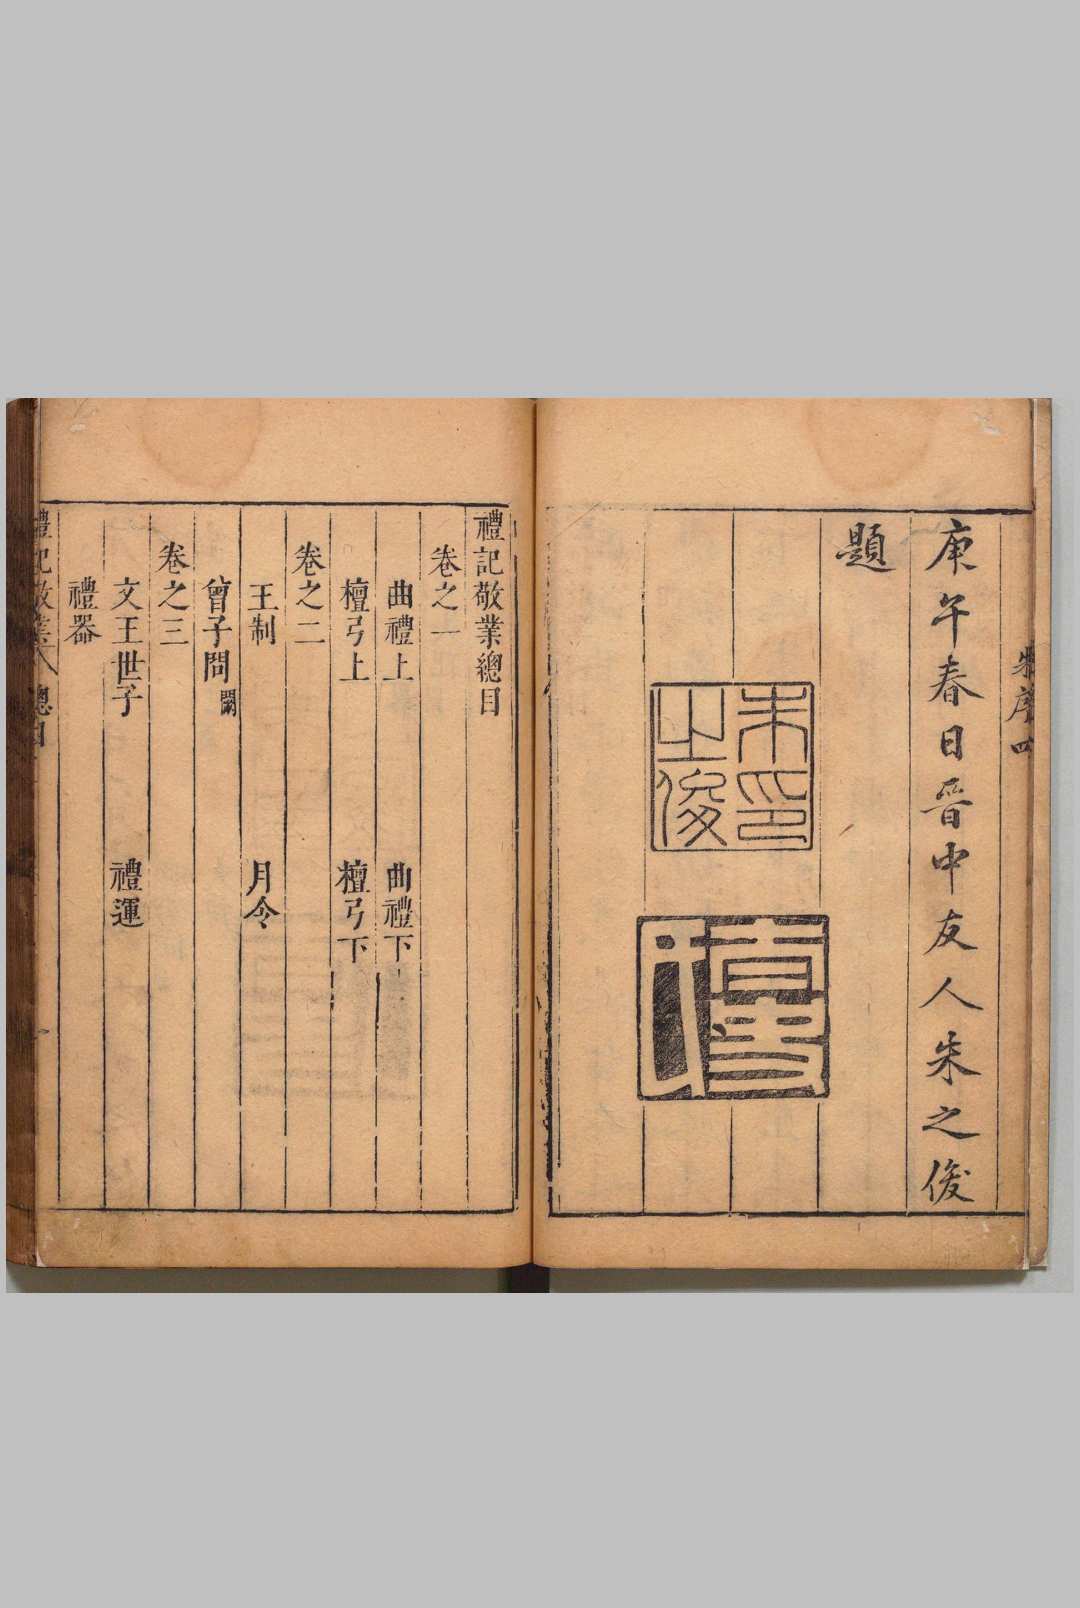 朱序 四
庚午春日晉中友人朱之俊
題
朱印
之俊
禮記敬業總目
卷之一
曲禮上 曲禮下
檀弓上 檀弓下
卷之二
王制 月令
曾子問闕
卷之三
文王世子 禮運
禮器
禮記敬業 總目